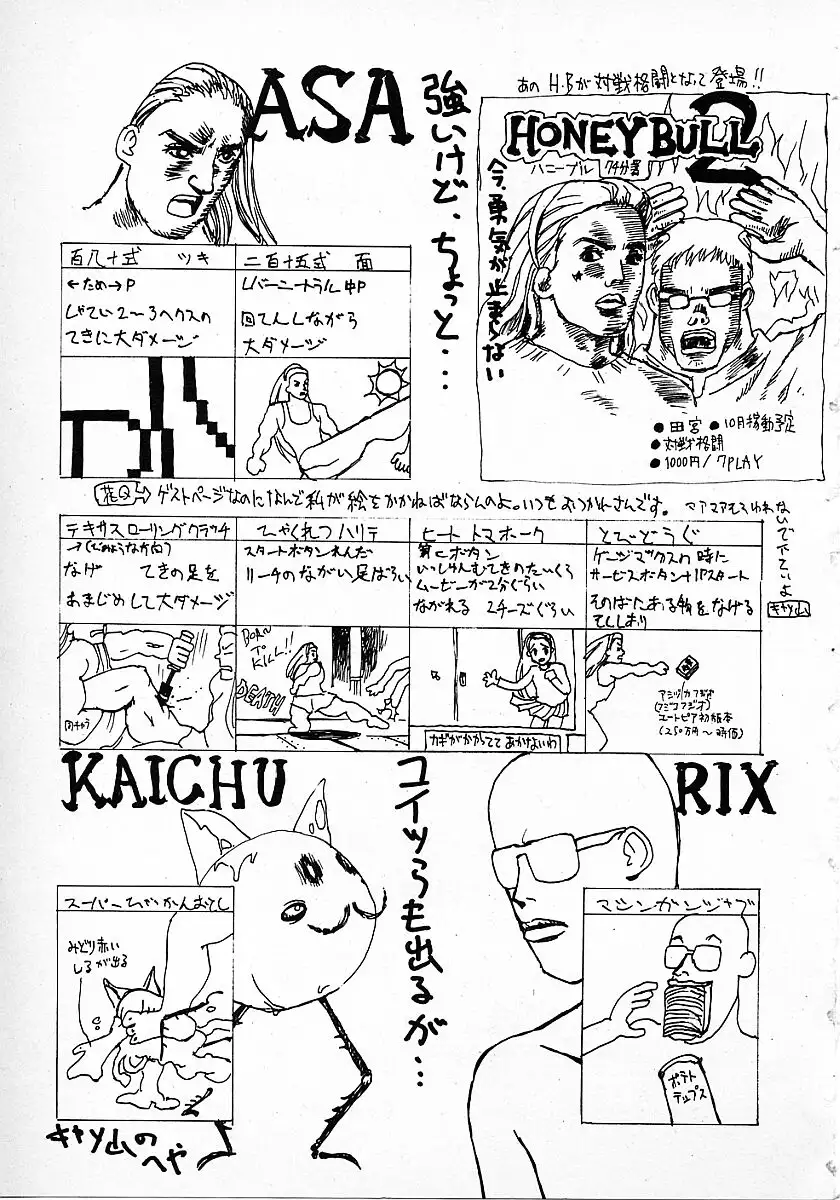 ASA
強いけど、ちょっと・・・
あの H・Bが対戦格闘となって登場!!
HONEY BULL 2
ハニーブル 74分署
今、勇気が止まらない
●田宮 ●10月稼動予定
●対戦格闘
●1000円/7PLAY
百八十式 ツキ
←ため→P
してい2〜3ヘクスの
てきに大ダメージ
二百十五式 面
レバーニートラル中P
回てんしながら
大ダメージ
ゲストページなのになんで私が絵をかかねばならんのよ。いつもおつかれさんです。
マアマアそういわれないで下さいよ
キャソ山
テキサスローリングクラッチ
なげ てきの足を
あまじめして大ダメージ
ひゃくれつハリテ
スタートボタンれんだ
リーチのながい足ばらい
BORN TO KILL!!
DEATH
ヒート トマホーク
第Cボタン
いっしゅんむてきのたいくう
ムービーが2分ぐらい
ながれる 2チーズぐらい
カギがかかっててあかないわ
とびどうぐ
ゲージマックスの時に
サービスボタン+1Pスタート
そのばにある物をなげる
アミツカフジオ
(フジコフジオ)
ユートピア初版本
(250万円〜時価)
KAICHU
コイツらも出るが・・・
RIX
みどり赤い
しるが出る
マシンガンジャブ
ポテト
チップス
キャソ山の
へや